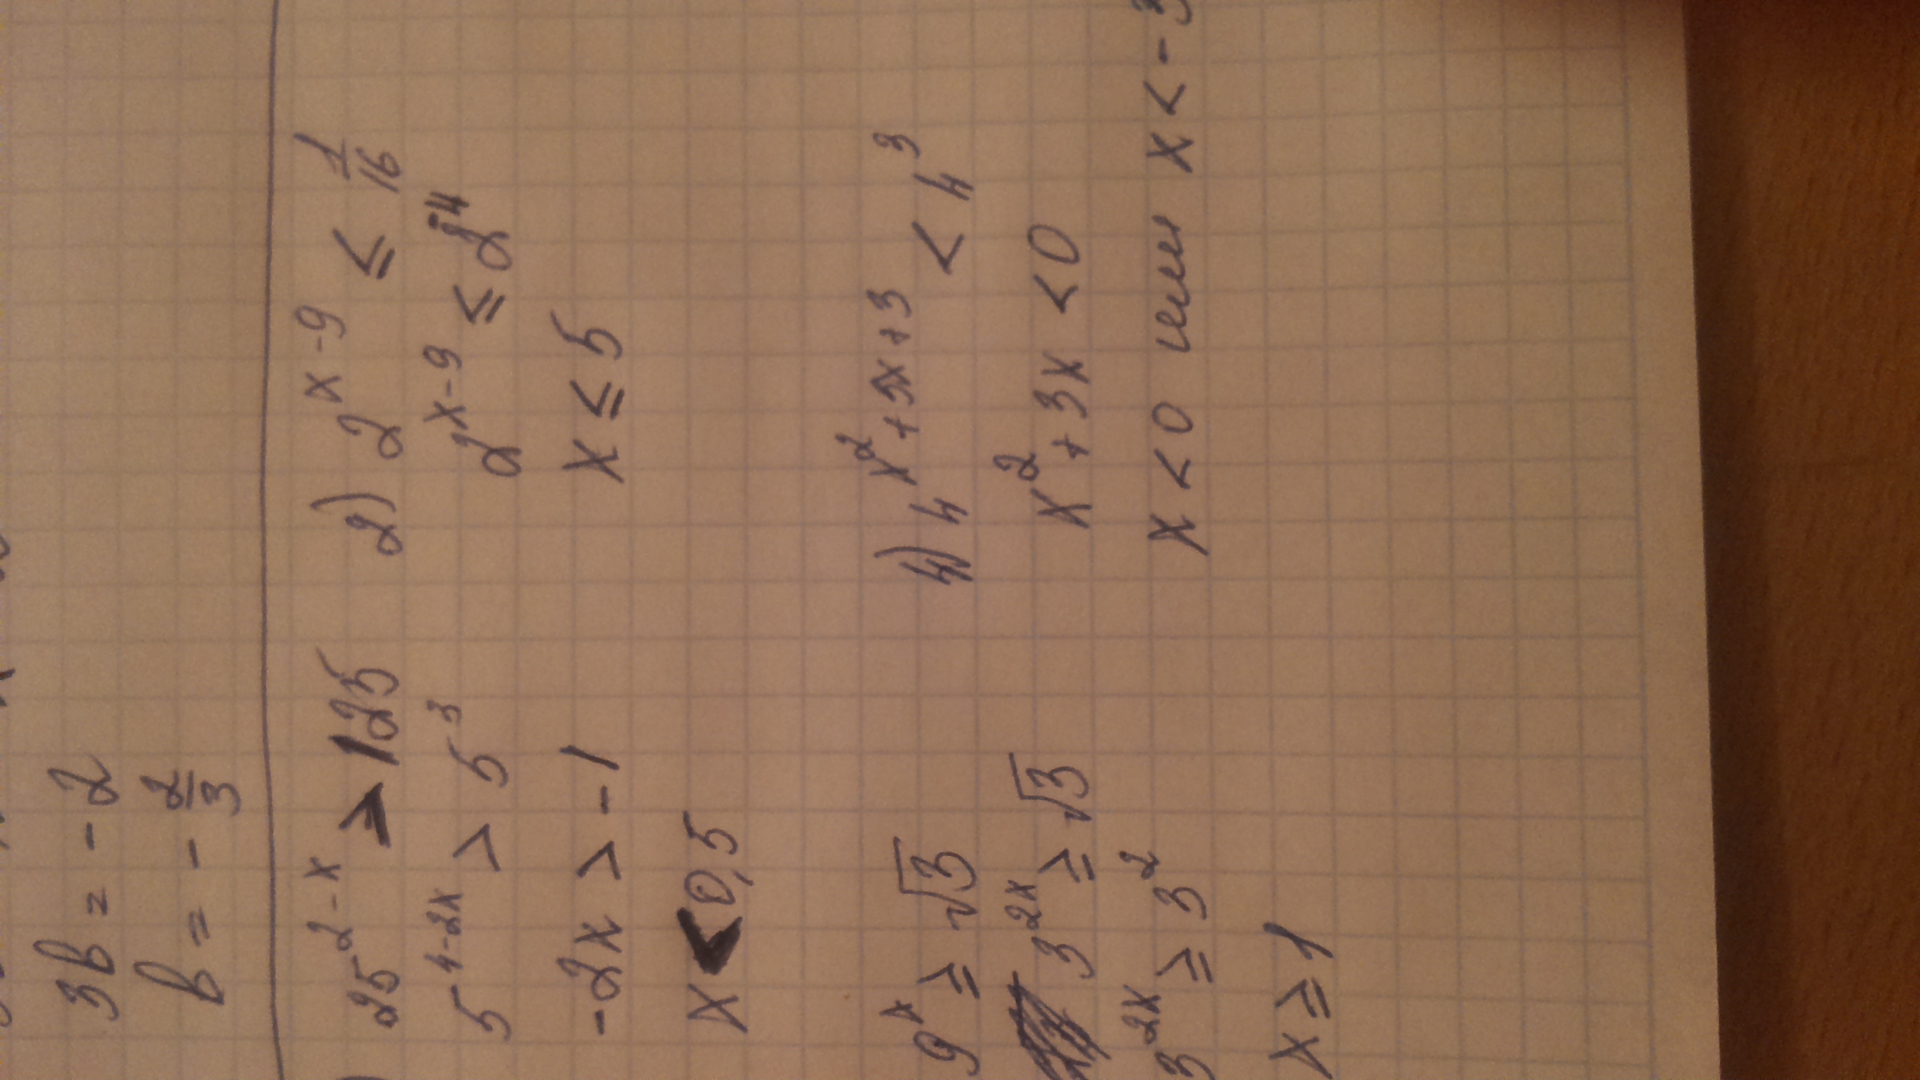 3b = -2
b = -2/3
25^{2-x} > 125
5^{4-2x} > 5^3
-2x > -1
x < 0,5
2) 2^{x-9} ≤ 1/16
2^{x-9} ≤ 2^{-4}
x ≤ 5
9^x ≥ √3
3^{2x} ≥ √3
3^{2x} ≥ 3^2
x ≥ 1
4) 4^{x^2+3x+3} < 4^3
x^2 + 3x < 0
x < 0 или x < -3